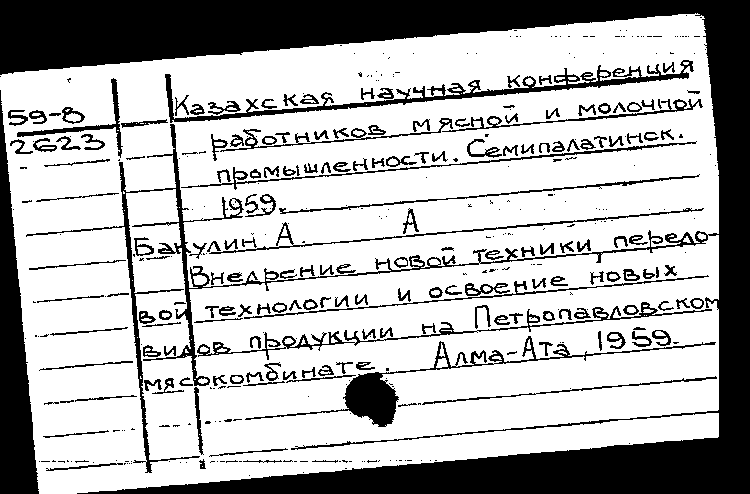 59-8
2623
Казахская научная конференция
работников мясной и молочной
промышленности. Семипалатинск.
1959.
Бакулин А. А
Внедрение новой техники, передо-
вой технологии и освоение новых
видов продукции на Петропавловском
мясокомбинате. Алма-Ата, 1959.